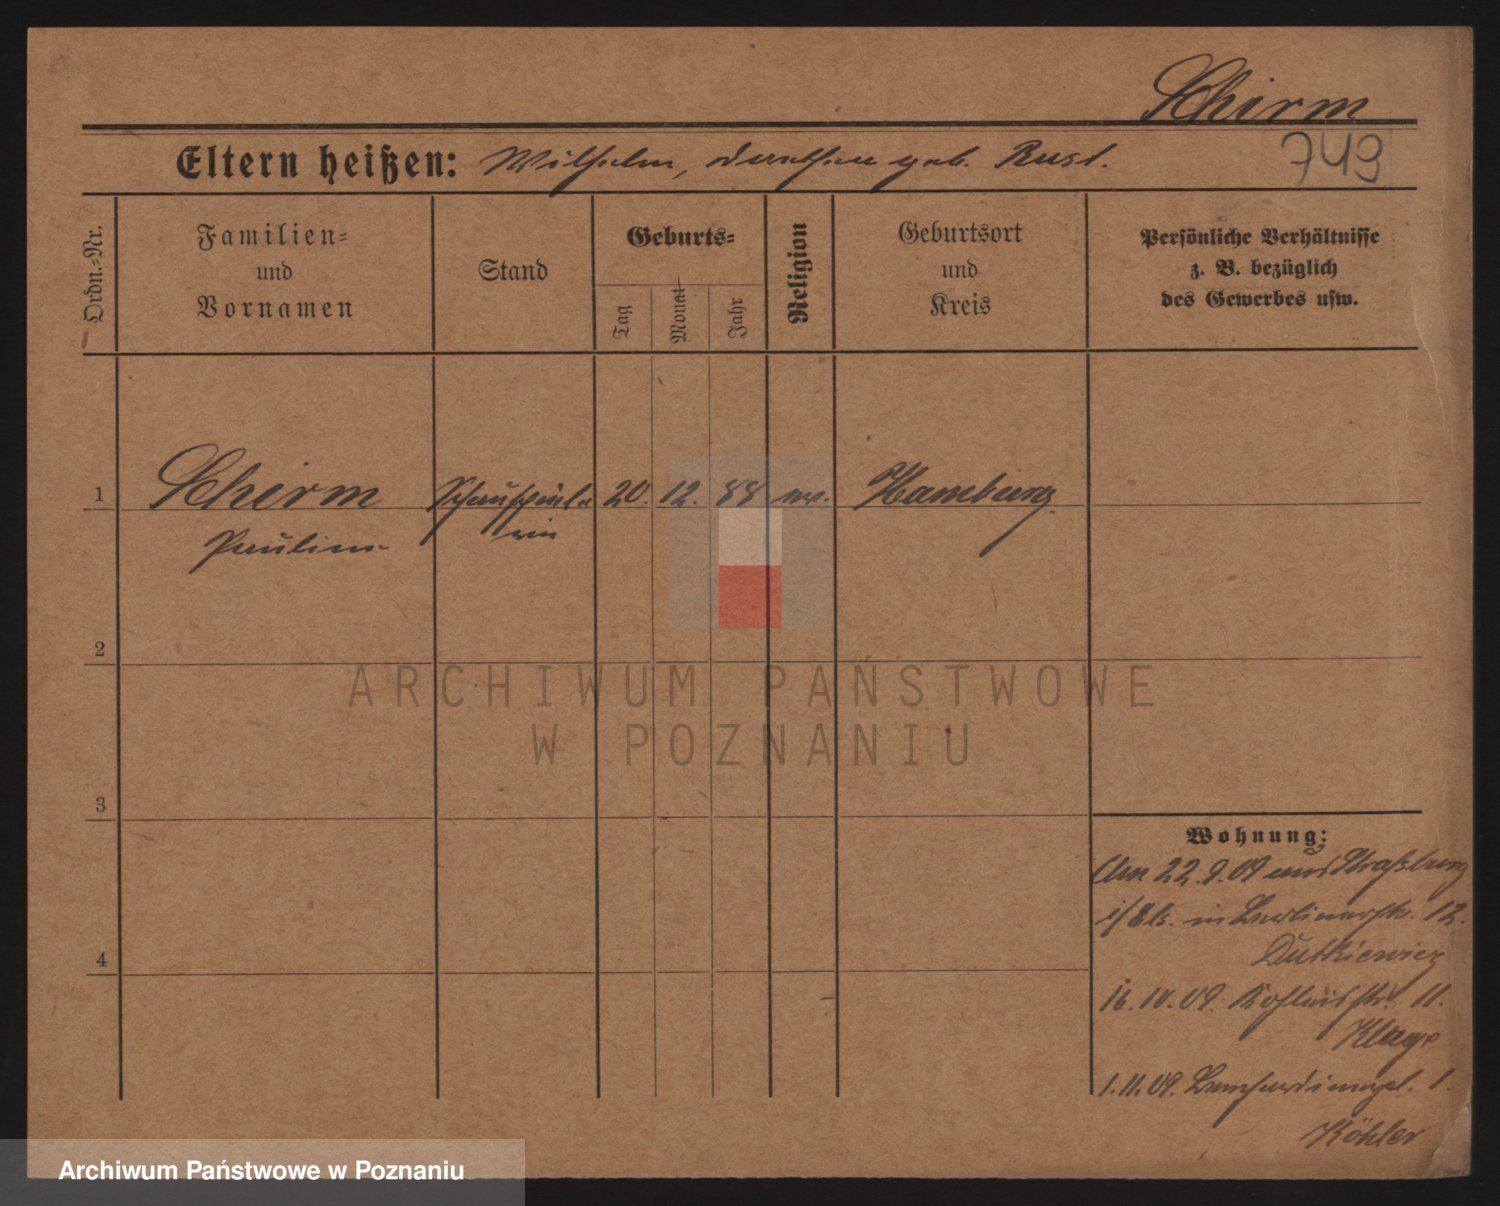 Schirm
Eltern heißen: Wilhelm, Dorothea geb. Rust.
749
Ordn.-Nr.
Familien-
und
Vornamen
Stand
Geburts-
Tag
Monat
Jahr
Religion
Geburtsort
und
Kreis
Persönliche Verhältnisse
z. B. bezüglich
des Gewerbes usw.
1 Schirm Schauspiele 20. 12. 88 ev. Hamburg
Pauline rin
2
3
4
Wohnung:
Am 22.9.09 aus Straßburg
i/Els. in Berlinerstr. 12.
Dutkiewicz
16.10.09. str. 11.
Klage
1.11.09. Bernhardinerpl. 1.
Köhler
ARCHIWUM PAŃSTWOWE
W POZNANIU
Archiwum Państwowe w Poznaniu